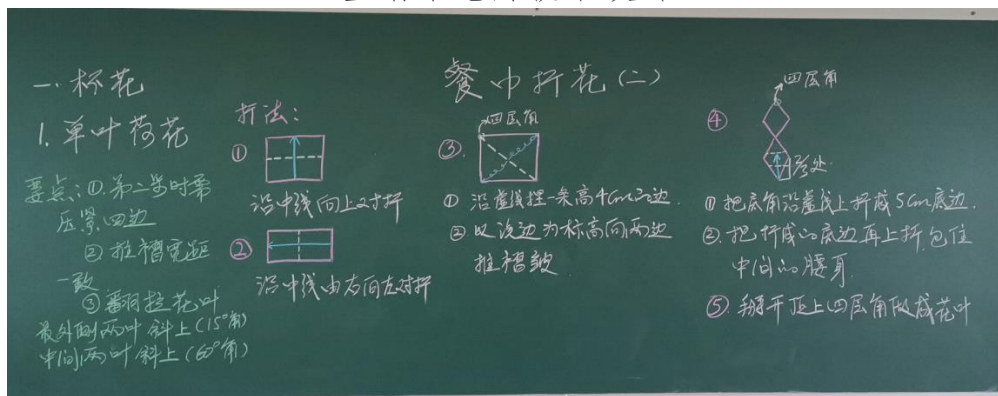 餐巾折花(二)
一.杯花
1.单叶荷花
要点:①.第二步时需
压紧四边
②推褶宽距
一致
③翻拉花叶
最外侧两叶斜上(15°角)
中间两叶斜上(60°角)
折法:
①
沿中线向上对折
②
沿中线由右向左对折
③.
四层角
①沿虚线捏一条高4cm的边.
②以该边为标高向两边
推褶皱
④
四层角
①把底角沿虚线上折成5cm底边.
②.把折成的底边再上折,包住
中间的腰身.
⑤.掰开顶上四层角做成花叶